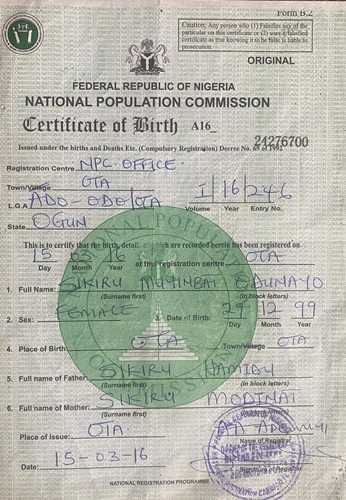 Form B.2
Caution: Any person who (1) Falsifies any of the
particular on this certificate or (2) uses a falsified
certificate as true knowing it to be false is liable to
prosecution
ORIGINAL
FEDERAL REPUBLIC OF NIGERIA
NATIONAL POPULATION COMMISSION
Certificate of Birth A16_
24276700
Issued under the births and Deaths Etc. (Compulsory Registration) Decree No. 69 of 1992
Registration Centre NPC OFFICE.
Town/Village OTA
L.G.A ADO-ODO/OTA I/16/246
Volume Year Entry No.
State OGUN
This is to certify that the birth, details of which are recorded herein has been registered on
15 03 16 at this registration centre OTA
Day Month Year
1. Full Name: SIKIRU ODUNAYO
(Surname first) (In block letters)
2. Sex: FEMALE 3. Date of Birth: 29 12 99
Day Month Year
4. Place of Birth: OTA Town/Village OTA
5. Full name of Father: SIKIRU HAMIDU
(Surname first) (In block letters)
6. Full name of Mother: SIKIRU MODINAT
(Surname first) (In block letters)
Place of Issue: OTA
Name of Registrar
Date: 15-03-16
Signature of Registrar
NATIONAL REGISTRATION PROGRAMME